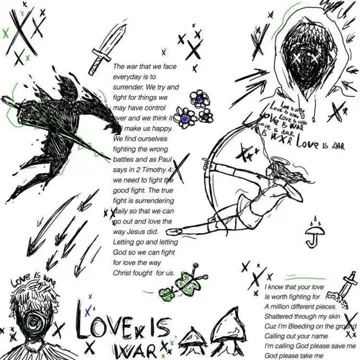 The war that we face
everyday is to
surrender. We try and
fight for things we
may have control
over and we think it
make us happy.
We find ourselves
fighting the wrong
battles and as Paul
says in 2 Timothy 4,
we need to fight the
good fight. The true
fight is surrendering
daily so that we can
go out and love the
way Jesus did.
Letting go and letting
God so we can fight
for love the way
Christ fought for us.
LOVE IS WAR
I know that your love
Is worth fighting for
A million different pieces
Shattered through my skin
Cuz I'm Bleeding on the ground
Calling out your name
I'm calling God please save me
God please take me
LOVE IS
LOVE IS
WAR